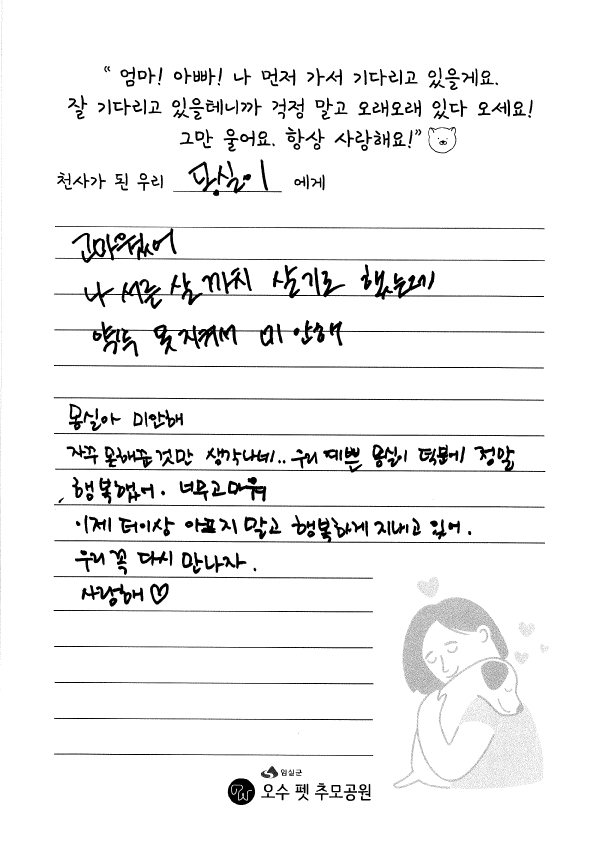 “ 엄마! 아빠! 나 먼저 가서 기다리고 있을게요.
잘 기다리고 있을테니까 걱정 말고 오래오래 있다 오세요!
그만 울어요. 항상 사랑해요!”
천사가 된 우리 몽실이 에게
고마웠어
나 서른살 까지 살기로 했는데
약속 못지켜서 미안해
몽실아 미안해
자꾸 못해준것만 생각나네.. 우리 예쁜 몽실이 덕분에 정말
행복했어. 너무고마워
이제 더이상 아프지 말고 행복하게 지내고 있어.
우리 꼭 다시 만나자.
사랑해♡
임실군
오수 펫 추모공원